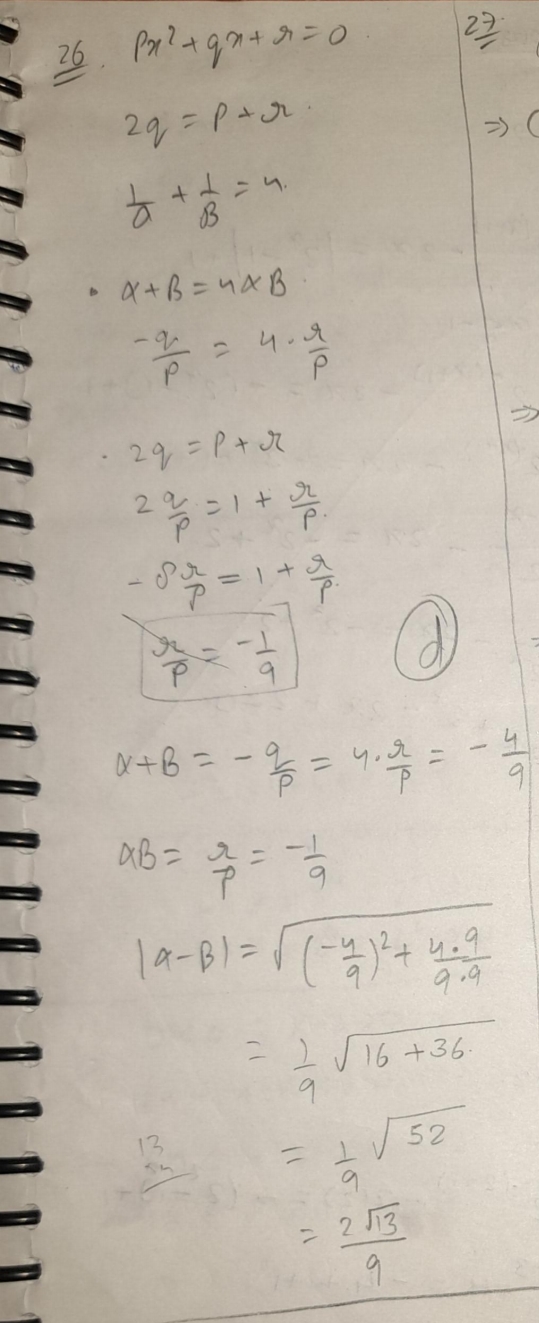 26. Px² + qx + r = 0.
27.
2q = P + r.
⇒ (
1/α + 1/β = 4.
• α + β = 4αβ.
-q/P = 4 · r/P
⇒
. 2q = P + r
2 q/P = 1 + r/P.
- 8 r/P = 1 + r/P.
r/P = -1/9
d
α + β = - q/P = 4 · r/P = - 4/9
αβ = r/P = - 1/9
|α - β| = √((-4/9)² + (4·9)/(9·9))
= 1/9 √(16 + 36.)
= 1/9 √52
13
= 2√13/9